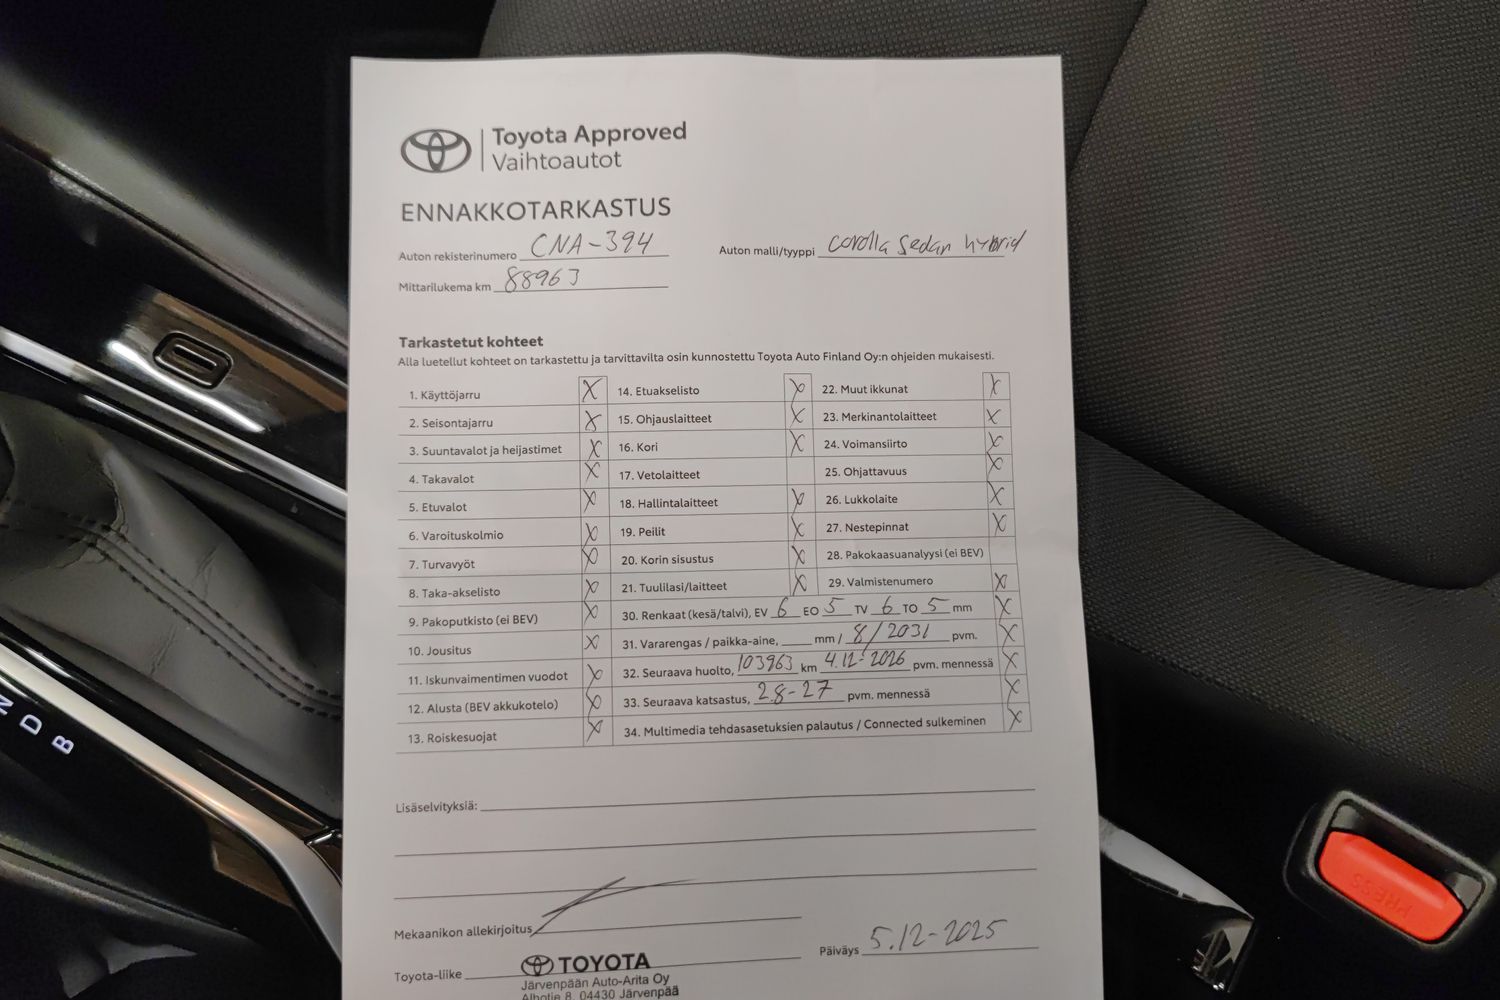 Toyota Approved
Vaihtoautot
ENNAKKOTARKASTUS
Auton rekisterinumero CNA-394 Auton malli/tyyppi corolla sedan hybrid
Mittarilukema km 88963
Tarkastetut kohteet
Alla luetellut kohteet on tarkastettu ja tarvittavilta osin kunnostettu Toyota Auto Finland Oy:n ohjeiden mukaisesti.
1. Käyttöjarru X 14. Etuakselisto X 22. Muut ikkunat X
2. Seisontajarru X 15. Ohjauslaitteet X 23. Merkinantolaitteet X
3. Suuntavalot ja heijastimet X 16. Kori X 24. Voimansiirto X
4. Takavalot X 17. Vetolaitteet 25. Ohjattavuus X
5. Etuvalot X 18. Hallintalaitteet X 26. Lukkolaite X
6. Varoituskolmio X 19. Peilit X 27. Nestepinnat X
7. Turvavyöt X 20. Korin sisustus X 28. Pakokaasuanalyysi (ei BEV)
8. Taka-akselisto X 21. Tuulilasi/laitteet X 29. Valmistenumero X
9. Pakoputkisto (ei BEV) X 30. Renkaat (kesä/talvi), EV 6 EO 5 TV 6 TO 5 mm X
10. Jousitus X 31. Vararengas / paikka-aine, mm / 8/2031 pvm. X
11. Iskunvaimentimen vuodot X 32. Seuraava huolto, 103963 km 4.12-2026 pvm. mennessä X
12. Alusta (BEV akkukotelo) X 33. Seuraava katsastus, 2.8-27 pvm. mennessä X
13. Roiskesuojat X 34. Multimedia tehdasasetuksien palautus / Connected sulkeminen X
Lisäselvityksiä:
Mekaanikon allekirjoitus Päiväys 5.12-2025
Toyota-liike TOYOTA
Järvenpään Auto-Arita Oy
Alhotie 8, 04430 Järvenpää
N
D
B
PRESS